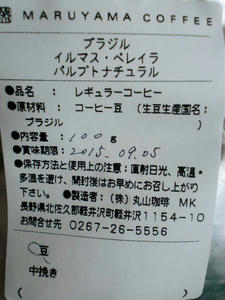 MARUYAMA COFFEE
ブラジル
イルマス・ペレイラ
パルプトナチュラル
●品名： レギュラーコーヒー
●原材料： コーヒー豆 （生豆生産国名：
ブラジル ）
●内容量： 100g
●賞味期限： 2015.09.05
●保存方法と使用上の注意：直射日光、高温・
多湿を避け、開封後はお早めにお召し上がり
下さい。 ●製造者：（株）丸山珈琲 MK
長野県北佐久郡軽井沢町軽井沢1154-10
お問合せ先 0267-26-5556
豆
中挽き